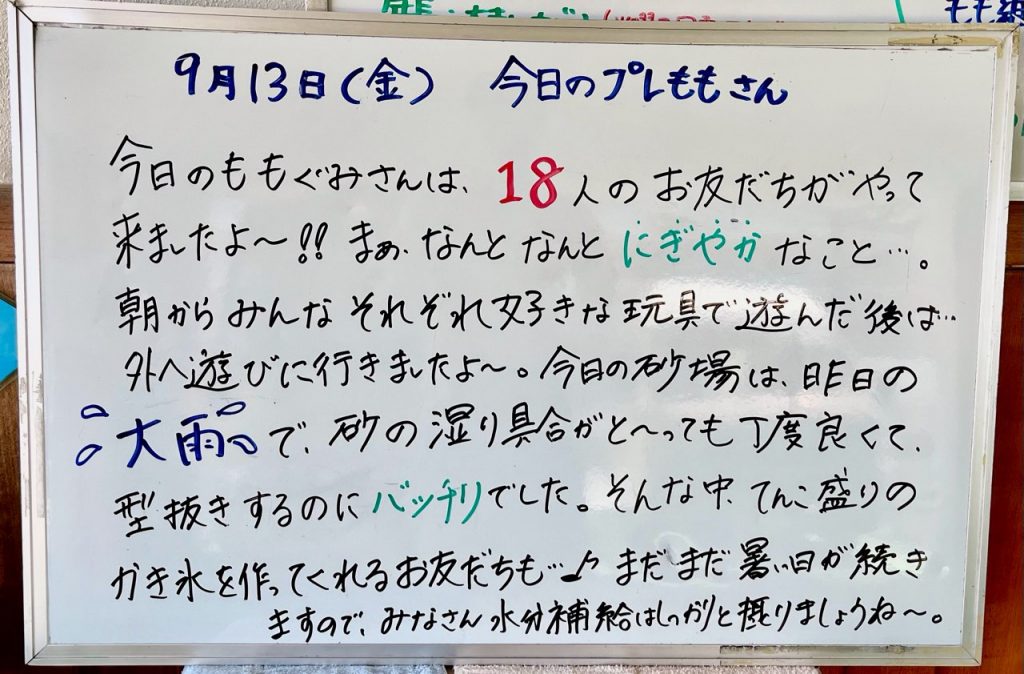 9月13日(金) 今日のプレももさん
今日のももぐみさんは、18人のお友だちがやって
来ましたよ～!! まぁ、なんとなんとにぎやかなこと…。
朝からみんなそれぞれ好きな玩具で遊んだ後は…
外へ遊びに行きましたよ～。今日の砂場は、昨日の
大雨で、砂の湿り具合がと～っても丁度良くて、
型抜きするのにバッチリでした。そんな中、てんこ盛りの
かき氷を作ってくれるお友だちも…♪ まだまだ暑い日が続き
ますので、みなさん水分補給はしっかりと摂りましょうね～。